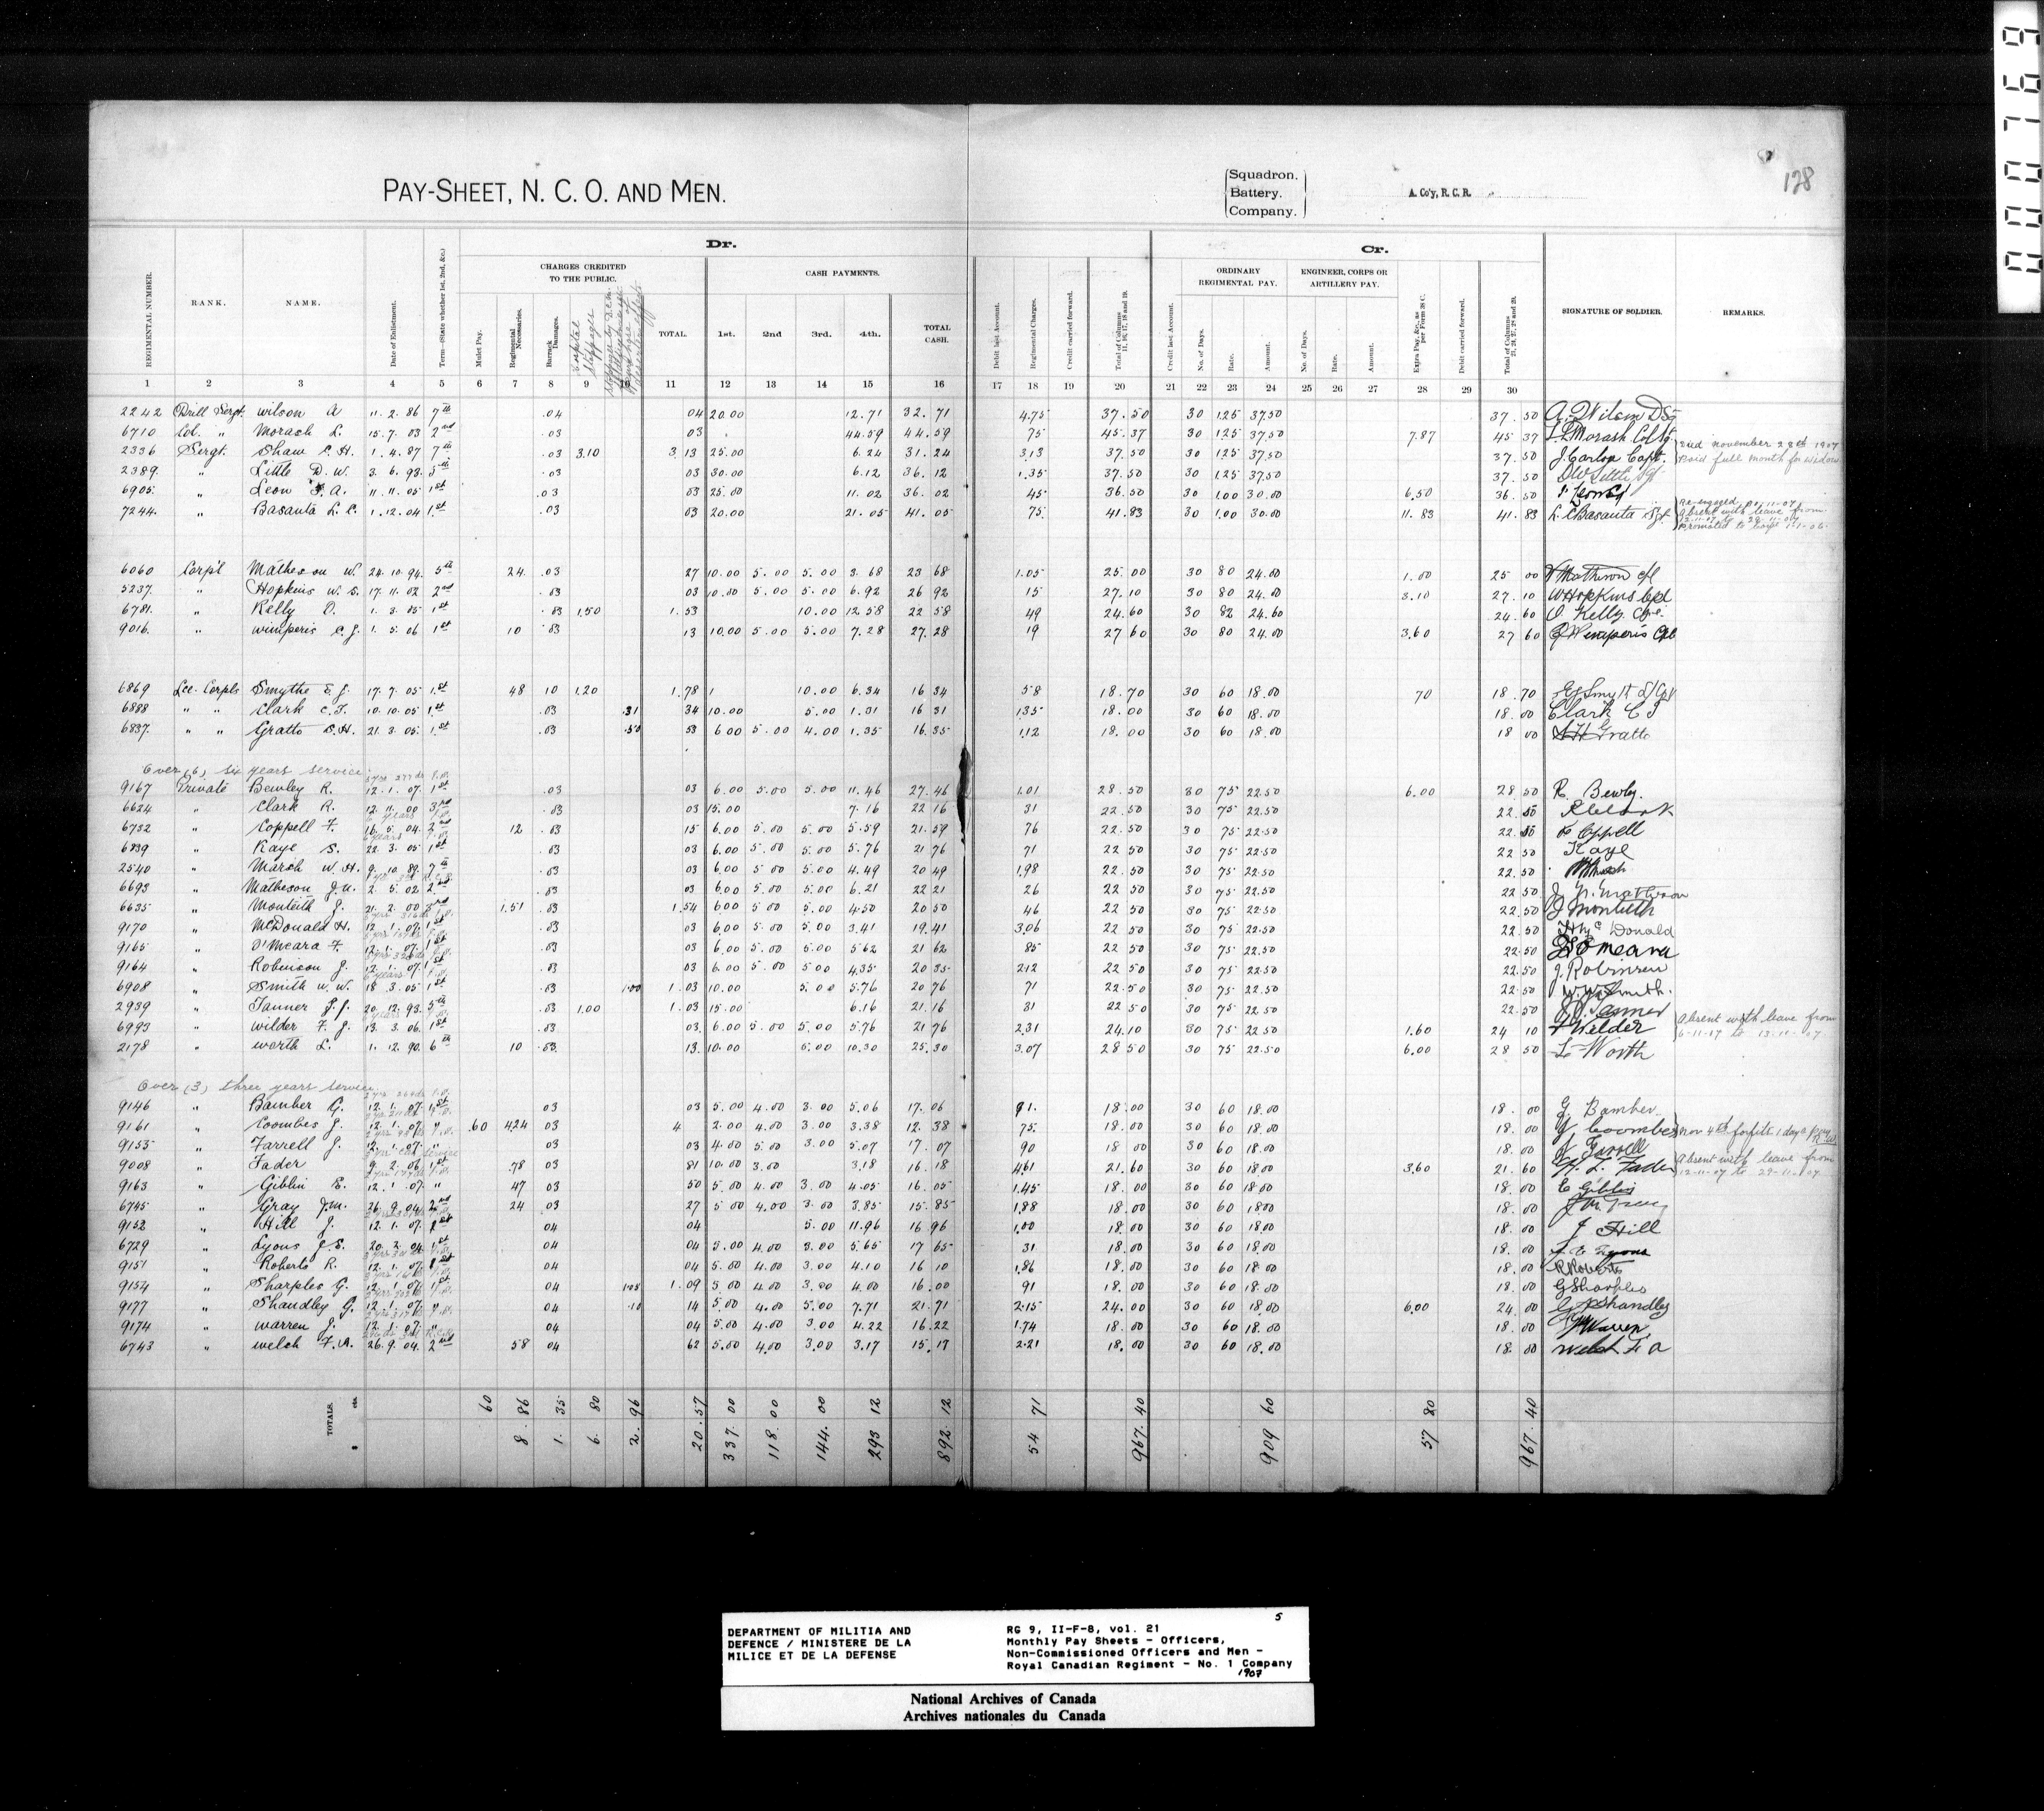 PAY-SHEET, N. C. O. AND MEN.
Squadron.
Battery.
Company.
A. Co'y, R. C. R.
128
Dr.
Cr.
CHARGES CREDITED TO THE PUBLIC.
CASH PAYMENTS.
ORDINARY REGIMENTAL PAY.
ENGINEER, CORPS OR ARTILLERY PAY.
REGIMENTAL NUMBER. RANK. NAME. Date of Enlistment. Term—(State whether 1st, 2nd, &c.) Mulct Pay. Regimental Necessaries. Barrack Damages. Hospital Stoppages TOTAL. 1st. 2nd 3rd. 4th. TOTAL CASH. Debit last Account. Regimental Charges. Credit carried forward. Total of Columns 11, 16, 17, 18 and 19. Credit last Account. No. of Days. Rate. Amount. No. of Days. Rate. Amount. Extra Pay, &c., as per Form 38 C. Debit carried forward. Total of Columns 21, 24, 27, 28 and 29. SIGNATURE OF SOLDIER. REMARKS.
1 2 3 4 5 6 7 8 9 10 11 12 13 14 15 16 17 18 19 20 21 22 23 24 25 26 27 28 29 30
2242 Drill Sergt. Wilson A 11. 2. 86 7th .04 04 20.00 12.71 32.71 4.75 37.50 30 1.25 37.50 37.50 A. Wilson
6710 Col. " Morash L. 15. 7. 03 2nd .03 03 44.59 44.59 75 45.37 30 1.25 37.50 7.87 45 37 Morash
2336 Sergt. Shaw C. H. 1. 4. 87 7th .03 3.10 3.13 25.00 6.24 31.24 3.13 37.50 30 1.25 37.50 37.50 J. Carlon Capt. Died November 28th 1907 Paid full month for widow
2389. " Little D. W. 3. 6. 93. 5th .03 03 30.00 6.12 36.12 1.35 37.50 30 1.25 37.50 37.50 DW Little Sgt
6905. " Leon A. 11. 11. 05 1st .03 03 25.00 11.02 36.02 45 36.50 30 1.00 30.00 6.50 36.50
7244. " Basanta L. C. 1. 12. 04 1st .03 03 20.00 21.05 41.05 75 41.83 30 1.00 30.00 11.83 41.83 L. C. Basanta Sgt. Re-engaged Absent with leave from Promoted to
6060 Corpl Matheson W. 24. 10. 94. 5th 24. .03 27 10.00 5.00 5.00 3.68 23 68 1.05 25.00 30 80 24.00 1.00 25 00 W Matheson cpl
5237. " Hopkins W. S. 17. 11. 02 2nd .03 03 10.00 5.00 5.00 6.92 26 92 15 27.10 30 80 24.00 3.10 27.10 W Hopkins Cpl
6781. " Kelly O. 1. 3. 05 1st .03 1.50 1.53 10.00 12.58 22 58 49 24.60 30 82 24.60 24 60 O Kelly
9016. " Wimperis C. J. 1. 5. 06 1st 10 .03 13 10.00 5.00 5.00 7.28 27.28 19 27 60 30 80 24.00 3.60 27 60 Wimperis Cpl
6869 Lce. Corpls Smythe E. J. 17. 7. 05 1st 48 10 1.20 1.78 10.00 6.34 16 34 58 18.70 30 60 18.00 70 18.70
6888 " " Clark C. F. 10. 10. 05 1st .03 .31 34 10.00 5.00 1.31 16 31 1.35 18.00 30 60 18.00 18.00 Clark C F
6837. " " Gratto S. H. 21. 3. 05. 1st .03 .50 53 6 00 5.00 4.00 1.35 16.35 1.12 18.00 30 60 18.00 18 00 S H Gratto
Over (6) six years service.
9167 Private Bewley R. 12. 1. 07. 1st .03 03 6.00 5.00 5.00 11.46 27.46 1.01 28.50 30 75 22.50 6.00 28.50 R. Bewley
6624 " Clark R. 12. 11. 00 3rd .03 03 15.00 7.16 22 16 31 22.50 30 75 22.50 22.50 R Clark
6732 " Coppell F. 16. 5. 04. 2nd 12 .03 15 6.00 5.00 5.00 5.59 21.59 76 22.50 30 75 22.50 22.50 F Coppell
6839 " Kaye S. 22. 3. 05 1st .03 03 6.00 5.00 5.00 5.76 21 76 71 22 50 30 75 22.50 22 50 Kaye
2540 " Marsh W. H. 9. 10. 89. 7th .03 03 6.00 5.00 5.00 4.49 20 49 1.98 22.50 30 75 22.50 22.50
6693 " Matheson J. N. 2. 5. 02 2nd .03 03 6.00 5.00 5.00 6.21 22 21 26 22.50 30 75 22.50 22 50 J. N. Matheson
6635 " Monteith J. 21. 2. 00 3rd 1.51 .03 1.54 6.00 5.00 5.00 4.50 20 50 46 22 50 30 75 22.50 22.50 J Monteith
9170 " McDonald H. 12. 1. 07. 1st .03 03 6.00 5.00 5.00 3.41 19.41 3.06 22 50 30 75 22.50 22.50 McDonald
9165 " O'Meara F. 12. 1. 07. 1st .03 03 6.00 5.00 5.00 5.62 21 62 85 22 50 30 75 22.50 22.50 O'Meara
9164 " Robinson J. 12. 1. 07. 1st .03 03 6.00 5.00 5.00 4.35 20 35 2.12 22 50 30 75 22.50 22.50 J. Robinson
6908 " Smith W. W. 18. 3. 05 1st .03 1.00 1.03 10.00 5.00 5.76 20 76 71 22.50 30 75 22.50 22.50 W. W. Smith.
2939 " Tanner J. J. 20. 12. 93. 5th .03 1.00 1.03 15.00 6.16 21.16 31 22 50 30 75 22.50 22.50 Tanner
6993 " Wilder F. J. 13. 3. 06. 1st .03 03 6.00 5.00 5.00 5.76 21 76 2.31 24.10 30 75 22.50 1.60 24 10 F Wilder Absent with leave from
2178 " Worth L. 1. 12. 90. 6th 10 .03 13. 10.00 5.00 10.30 25.30 3.07 28 50 30 75 22.50 6.00 28 50 L Worth
Over (3) three years service.
9146 " Bamber G. 12. 1. 07. 1st 03 03 5.00 4.00 3.00 5.06 17.06 91. 18.00 30 60 18.00 18.00 G Bamber
9161 " Coombes J. 12. 1. 07 " .60 4.24 03 4 2.00 4.00 3.00 3.38 12.38 75. 18.00 30 60 18.00 18.00 Coombes Nov 4th forfeits 1 days pay
9153 " Farrell J. 12. 1. 07. " 03 03 4.00 5.00 3.00 5.07 17.07 90 18 00 30 60 18.00 18.00 J Farrell
9008 " Fader 9. 2. 06 1st .78 03 81 10.00 3.00 3.18 16.18 4.61 21.60 30 60 18.00 3.60 21.60 Fader Absent with leave from 12-11-07 to 29-11-07
9163 " Giblin E. 12. 1. 07. " 47 03 50 5.00 4.00 3.00 4.05 16.05 1.45 18.00 30 60 18.00 18.00 E Giblin
6745 " Gray J. M. 26. 9. 04 2nd 24 03 27 5.00 4.00 3.00 3.85 15.85 1.88 18.00 30 60 18.00 18.00
9152 " Hill J. 12. 1. 07. 1st 04 04 5.00 11.96 16 96 1.00 18.00 30 60 18.00 18.00 J Hill
6729 " Lyons J. S. 20. 2. 04. 1st 04 04 5.00 4.00 3.00 5.65 17 65 31 18.00 30 60 18.00 18.00
9151 " Roberts R. 12. 1. 07. 1st 04 04 5.00 4.00 3.00 4.10 16 10 1.86 18.00 30 60 18.00 18.00 R Roberts
9154 " Sharples G. 12. 1. 07. 1st 04 1.05 1.09 5.00 4.00 3.00 4.00 16.00 91 18.00 30 60 18.00 18.00 G Sharples
9177 " Shandley G. 12. 1. 07. " 04 .10 14 5.00 4.00 5.00 7.71 21.71 2.15 24.00 30 60 18.00 6.00 24.00 Shandley
9174 " Warren J. 12. 1. 07. " 04 04 5.00 4.00 3.00 4.22 16.22 1.74 18.00 30 60 18.00 18.00 Warren
6743 " Welch F. A. 26. 9. 04. 2nd 58 04 62 5.00 4.00 3.00 3.17 15.17 2.21 18.00 30 60 18.00 18.00 Welch F A
TOTALS. $ cts. 60 8.86 1.35 6.80 2.96 20.57 337.00 118.00 144.00 293 12 892.12 54 71 967.40 909 60 57 80 967.40
DEPARTMENT OF MILITIA AND
DEFENCE / MINISTERE DE LA
MILICE ET DE LA DEFENSE
5
RG 9, II-F-8, vol. 21
Monthly Pay Sheets - Officers,
Non-Commissioned Officers and Men -
Royal Canadian Regiment - No. 1 Company
1907
National Archives of Canada
Archives nationales du Canada